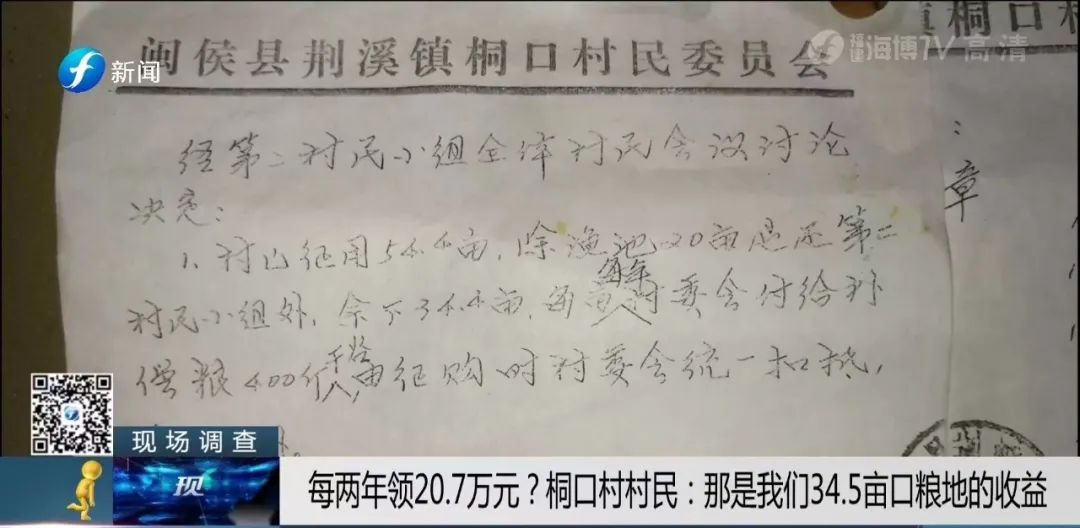 新闻
福建海博TV 高清
闽侯县荆溪镇桐口村民委员会
镇桐口村
经第二村民小组全体村民会议讨论
决定：
1、村已征用54.4亩，除渔池20亩退还第二
每年
村民小组外，余下34.4亩，每亩村委会付给补
干谷
偿粮400斤，由征购时村委会统一扣抵，
：
章
现场调查
现
每两年领20.7万元？桐口村村民：那是我们34.5亩口粮地的收益